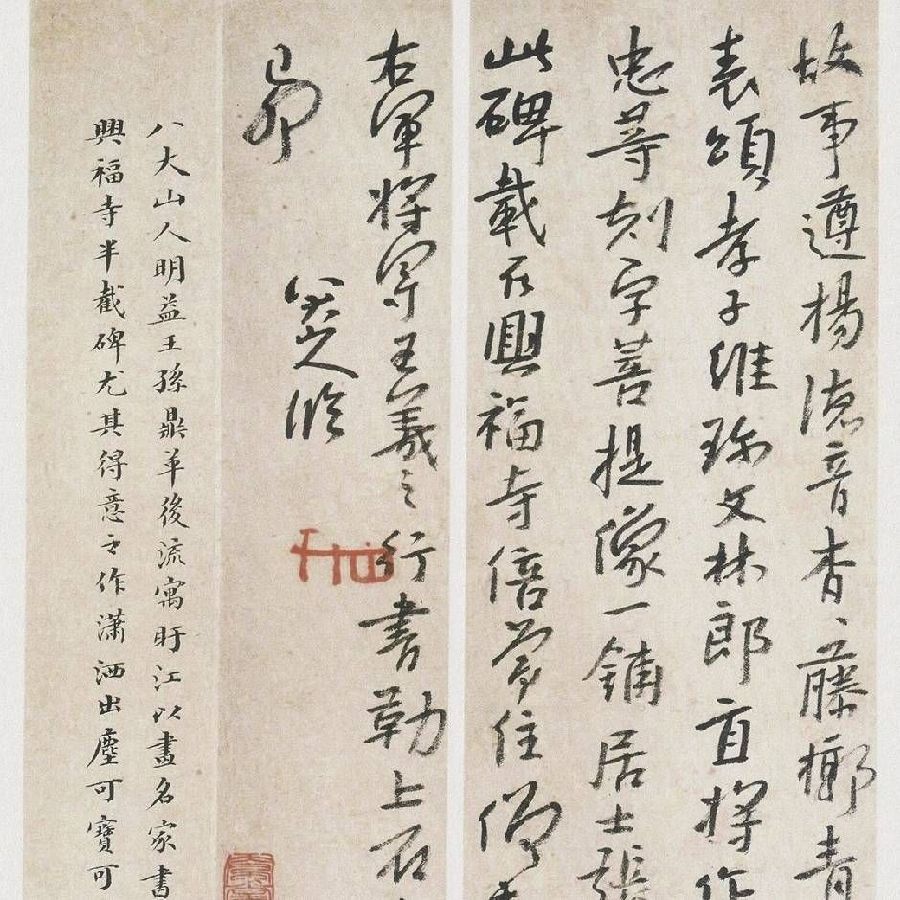 故事遵楊德音杳、藤榔青
表頌孝子維琢文林郎直
忠等刻字菩提像一鋪居士張
此碑載在興福寺倍常住僧
右軍將軍王羲之行書勒上石
八大山人
八大山人明益王孫鼎革後流寓盱江以畫名家書
興福寺半截碑尤其得意之作瀟洒出塵可寶可